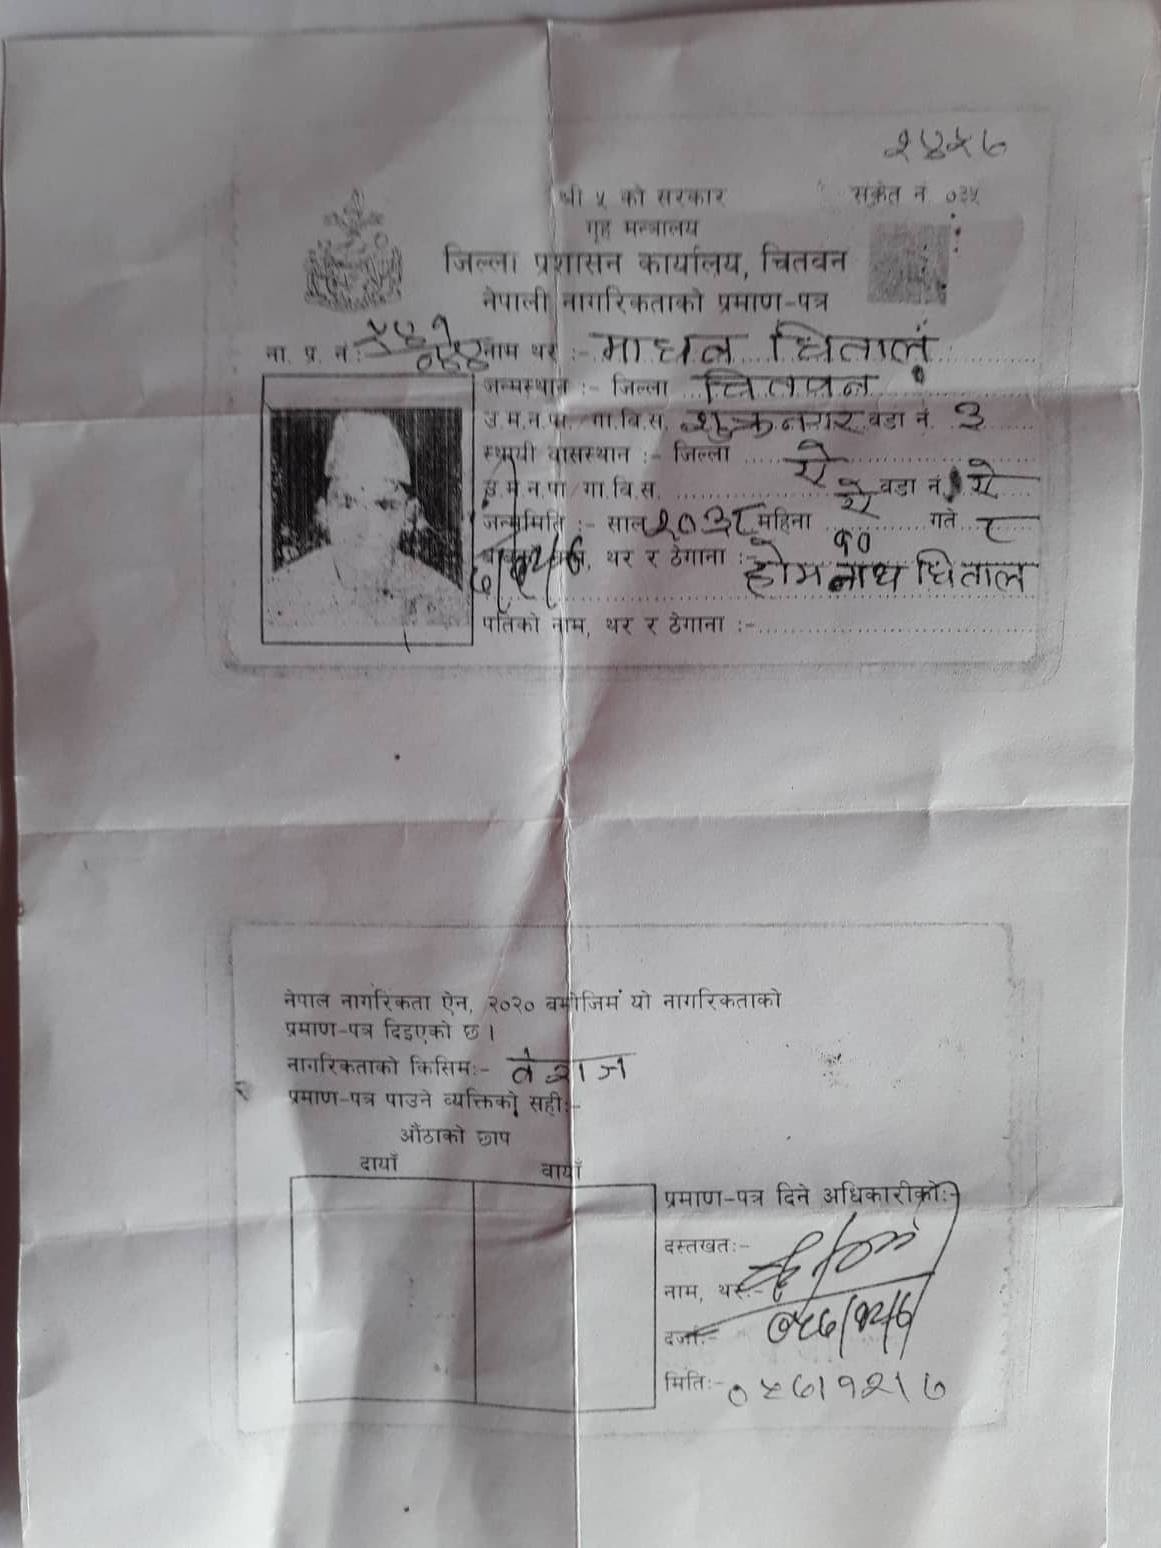 २४५७
श्री ५ को सरकार
संकेत नं. ०३५
गृह मन्त्रालय
जिल्ला प्रशासन कार्यालय, चितवन
नेपाली नागरिकताको प्रमाण-पत्र
ना. प्र. नं.: नाम थर :- माधव धिताल
जन्मस्थान :- जिल्ला चितवन
उ.म.न.पा. गा.वि.स. शुक्रनगर वडा नं. ३
स्थायी वासस्थान :- जिल्ला ऐ
उ.म.न.पा गा.वि.स. ऐ वडा नं. ऐ
जन्ममिति :- साल २०३८ महिना १० गते ८
थर र ठेगाना :- होमनाथ धिताल
पतिको नाम, थर र ठेगाना :-
नेपाल नागरिकता ऐन, २०२० बमोजिम यो नागरिकताको
प्रमाण-पत्र दिइएको छ ।
नागरिकताको किसिम:- वंशज
प्रमाण-पत्र पाउने व्यक्तिको सही:-
औंठाको छाप
दायाँ
वायाँ
प्रमाण-पत्र दिने अधिकारीको:-
दस्तखत:-
नाम, थर:-
दर्जा:- ०५७/१२/७
मिति:- ०५७।१२।७